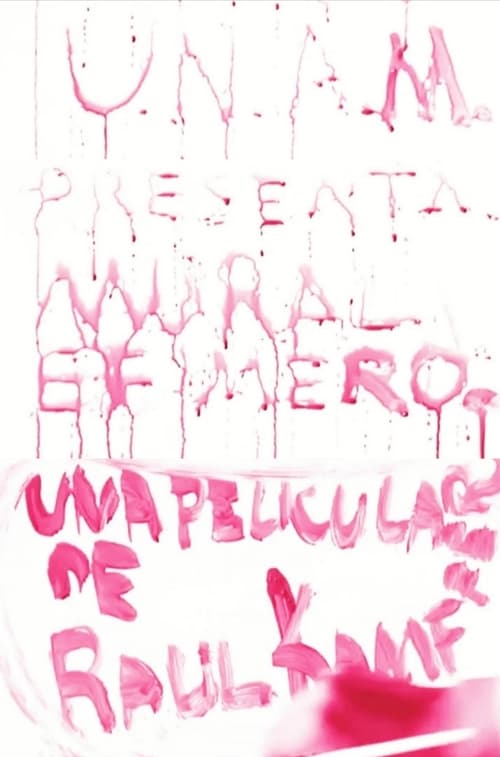 U.N.A.M.
PRESENTA
MURAL
EFIMERO.
UNA PELICULA
DE
RAUL KAMFFER